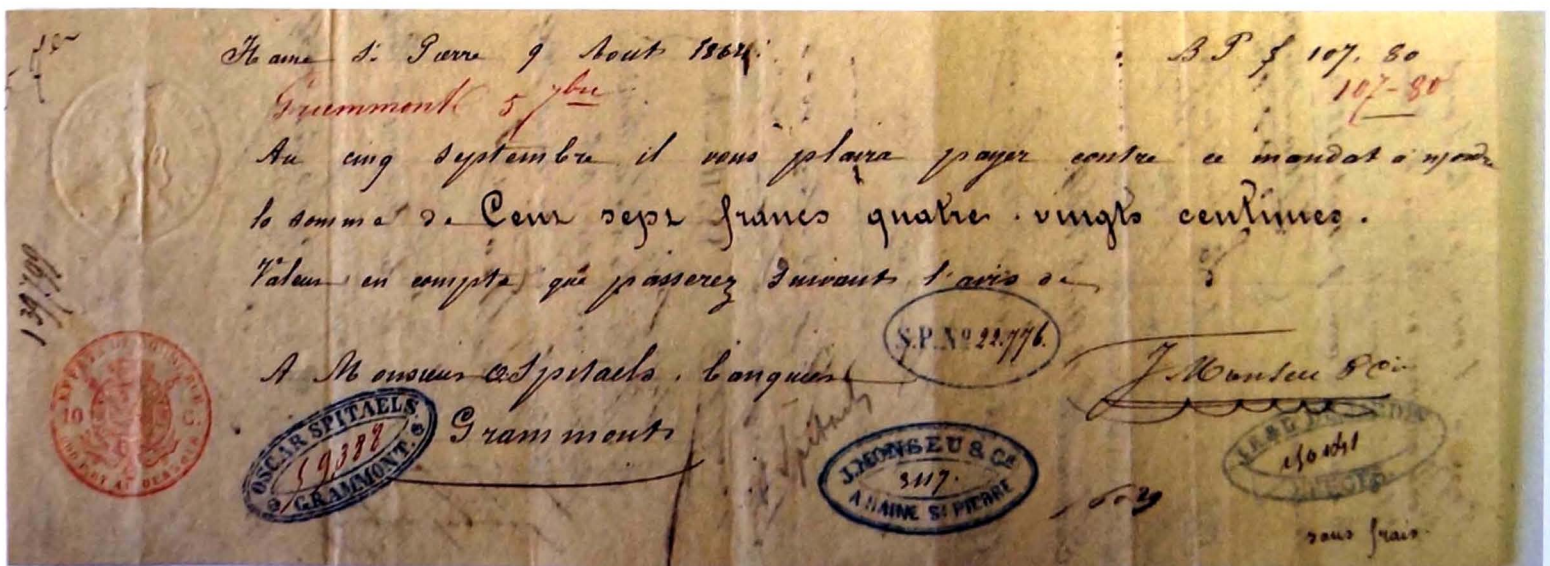 Haine St. Pierre 9 Aout 1864
B P f 107. 80
Grammont 5 7bre
107-80
Au cinq Septembre il vous plaira payer contre ce mandat à
la somme de Cent sept francs quatre-vingts centimes.
Valeur en compte que passerez suivant l'avis de
S.P. No 22.776.
A Monsieur O Spitaels. banquier
J Monseu & Cie
Grammont
OSCAR SPITAELS
59,338
GRAMMONT.
J. MONSEU & Ce
3117.
A HAINE St PIERRE
10 C
sans frais.